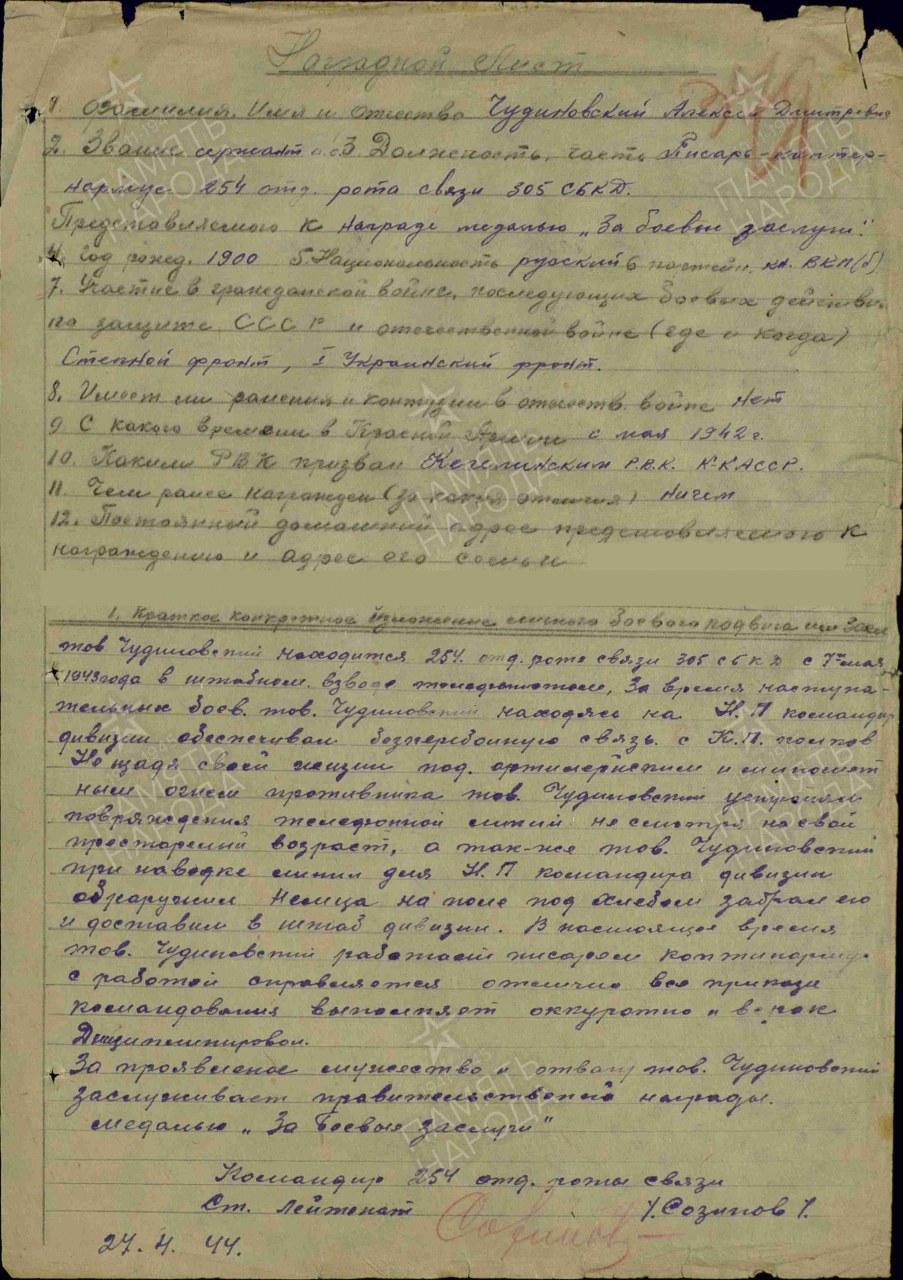 Наградной Лист
1. Фамилия. Имя и отчество Чудиновский Алексей Дмитревич
2. Звание сержант а/с 3. Должность, часть Писарь-каптер-
нармус 254 отд. рота связи 305 СБКД.
Представляемого к награде медалью „За боевые заслуги".
4. Год рожед. 1900 5. Национальность русский 6 партейн. кл. ВКП(б)
7. Участие в гражданской войне, последующих боевых действ.
по защите СССР и отечественной войне (где и когда)
Степной фронт, I Украинский фронт.
8. Имеет ли ранения и контузии в отечеств. войне Нет
9. С какого времени в Красной Армии с мая 1942 г.
10. Каким РВК призван РВК. ККАССР.
11. Чем ранее награжден (за какие отличия) Ничем
12. Постоянный домашний адрес представляемого к
награждению и адрес его семьи
1. Краткое конкретное изложение личного боевого подвига или засл
тов Чудиновский находится 254. отд. роте связи 305 сбкд с 7го мая
1943 года в штабном взводе телефонистом, За время наступа-
тельных боев. тов. Чудиновский находясь на Н.П командира
дивизии обеспечивал безперебойную связь с К.П. полков
Не щадя своей жизни под. артилерийским и миномет
ным огнем противника тов. Чудиновский
повряждения телефонной линий не смотря на свой
престарелий возраст, а так-же тов. Чудиновский
при наводке линии для Н.П командира дивизии
обнаружил Немца на поле под хлебом забрал его
и доставил в штаб дивизии. В настоящее время
тов. Чудиновский работает писарем
с работой справляется отлично все приказы
командования выполняет оккуратно и в срок
Дисциплинирован.
За проявленое мужество и отвагу тов. Чудиновский
заслуживает правительственой награды.
медалью „За боевые заслуги"
Командир 254 отд. роты связи
Ст. Лейтенат /.Созинов /.
27. 4. 44.
ПАМЯТЬ НАРОДА